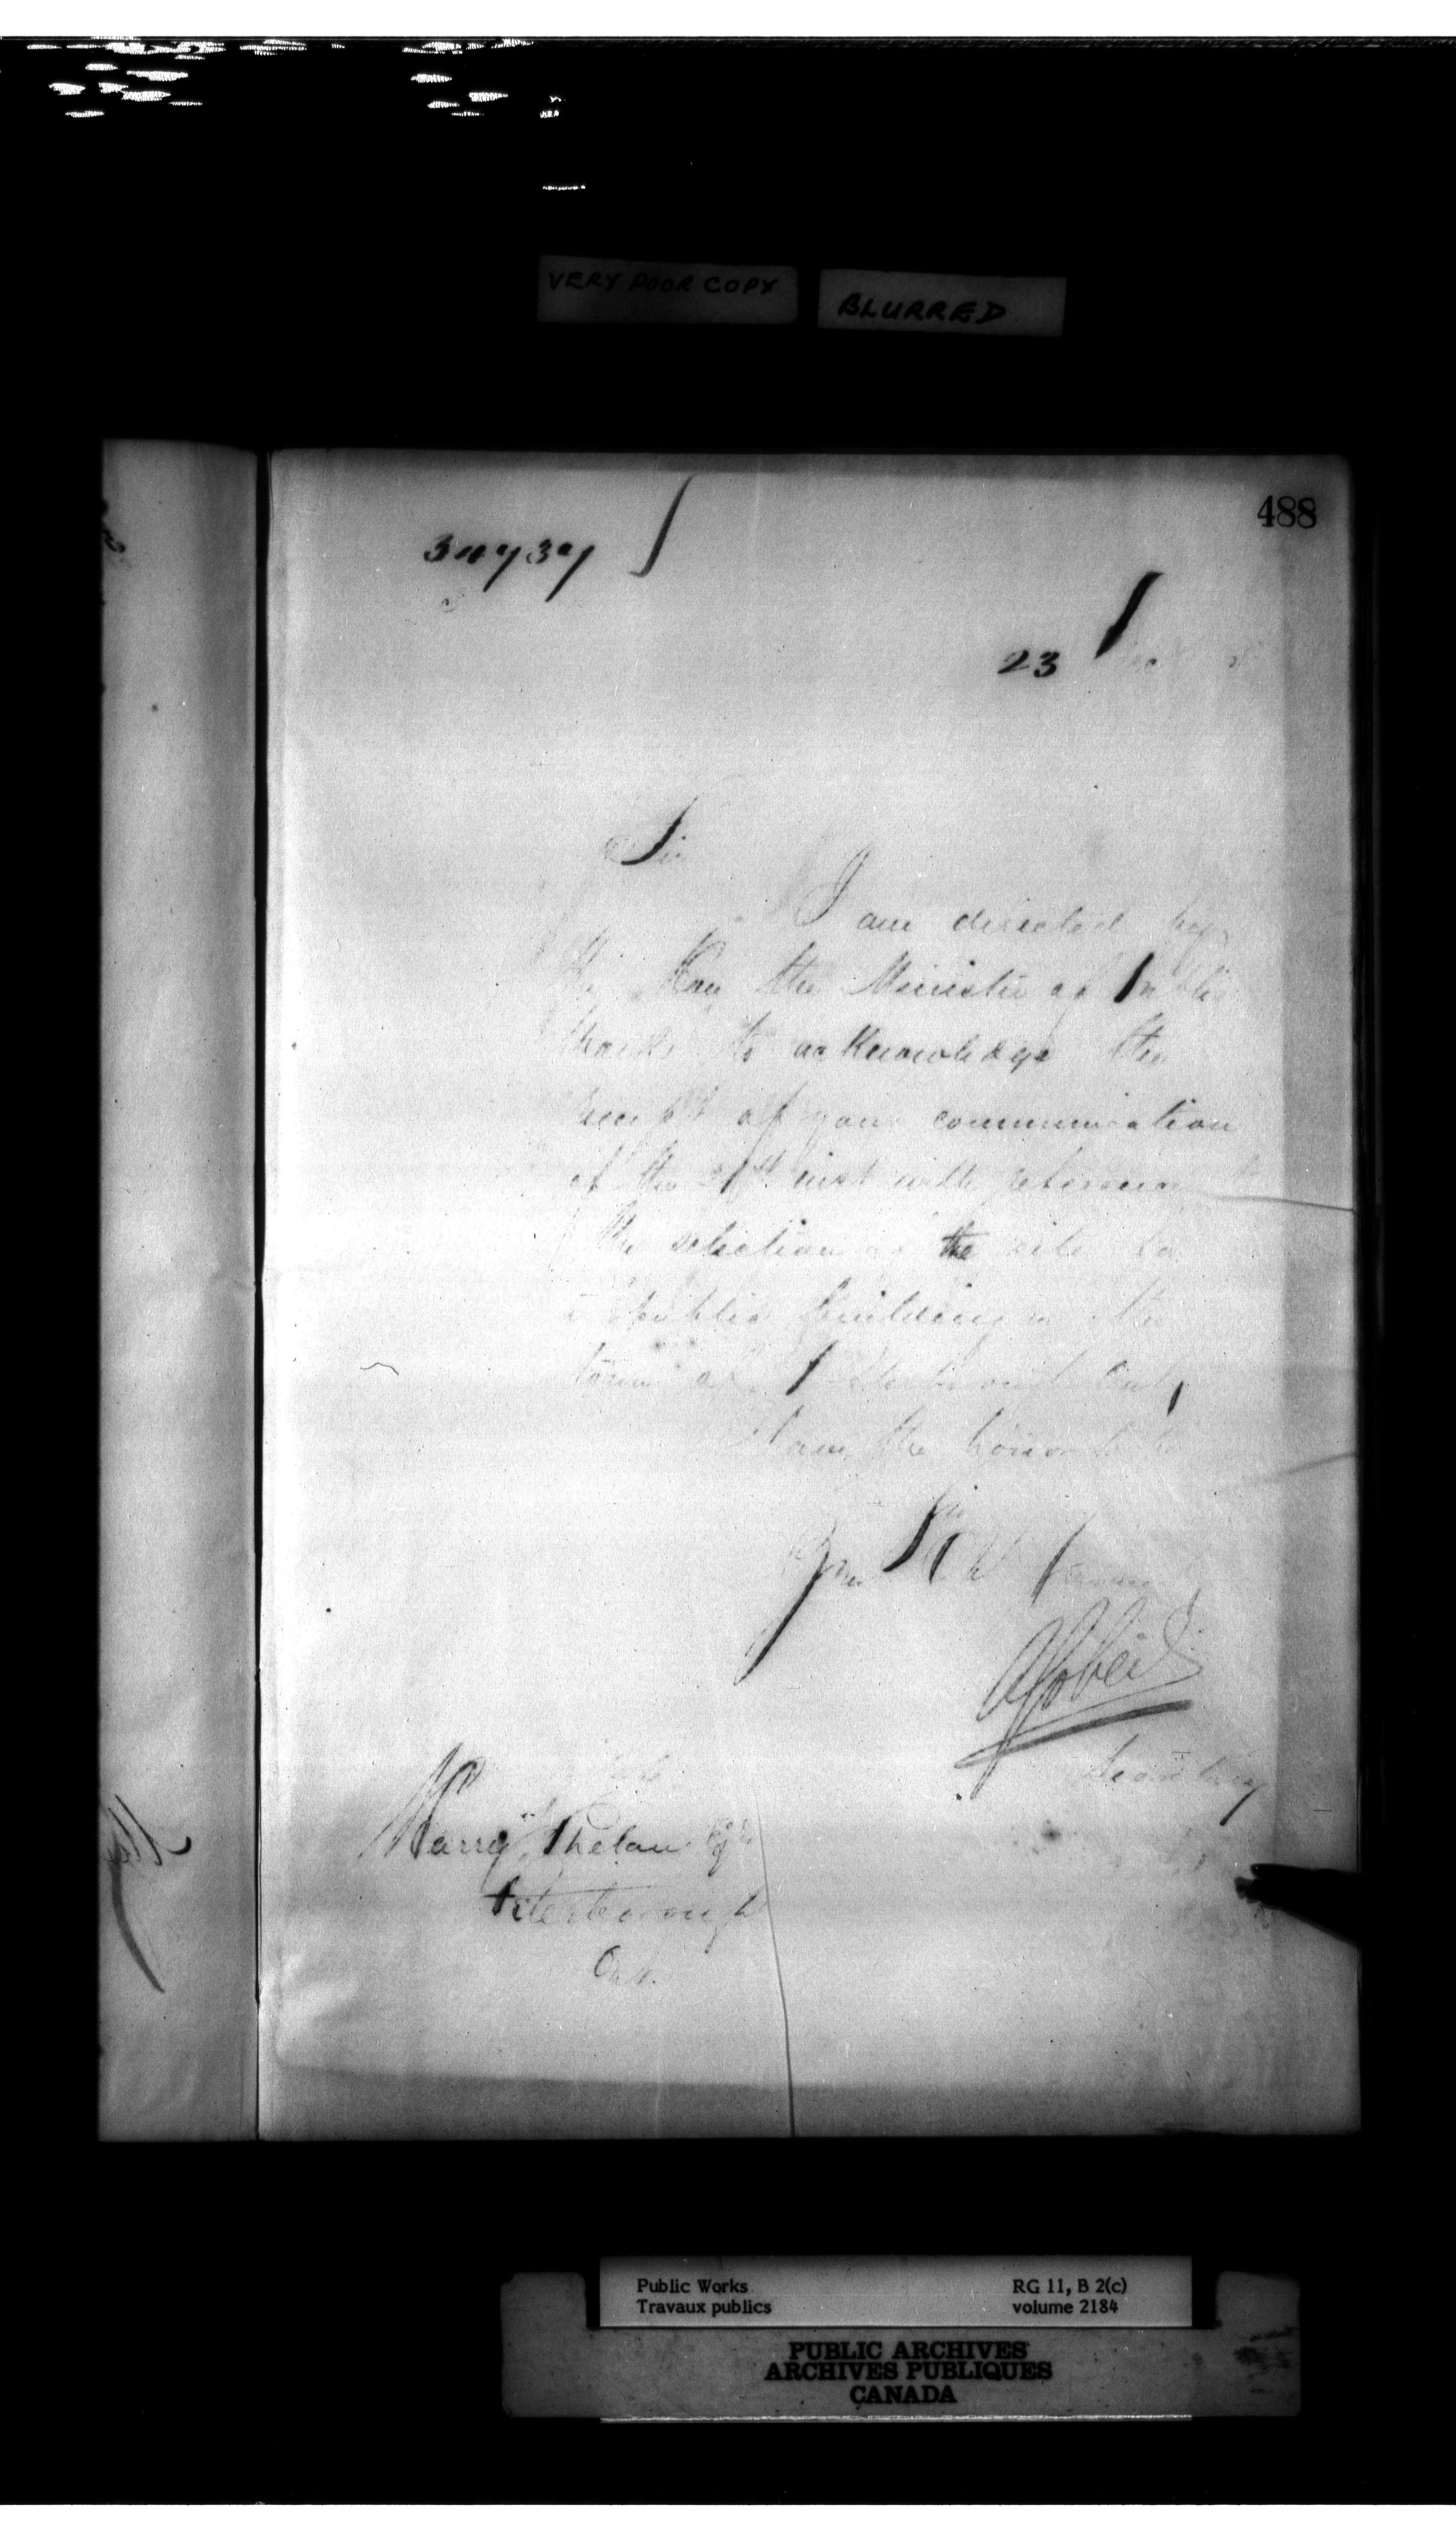 VERY POOR COPY
BLURRED
488
23
Sir
I am directed by
the Hon the Minister of Public
Works to acknowledge the
receipt of your communication
of the inst with reference to
the selection of the site for
a Public Building in the
town of Peterborough Ont,
I have the honor to be
Sir
Your Obt Servant
Secretary
Harry Phelan Esq
Peterborough
Ont.
Public Works
Travaux publics
RG 11, B 2(c)
volume 2184
PUBLIC ARCHIVES
ARCHIVES PUBLIQUES
CANADA